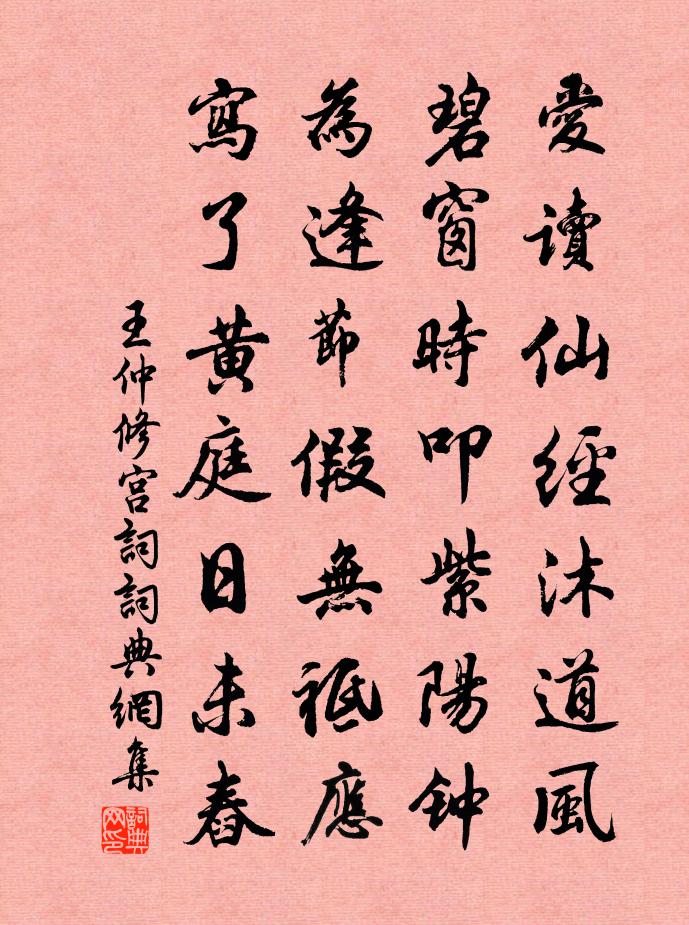 愛讀仙經沐道風
碧窗時叩紫陽钟
為逢節假無祗應
寫了黄庭日未舂
王仲修宫詞詞典網集
詞典网印